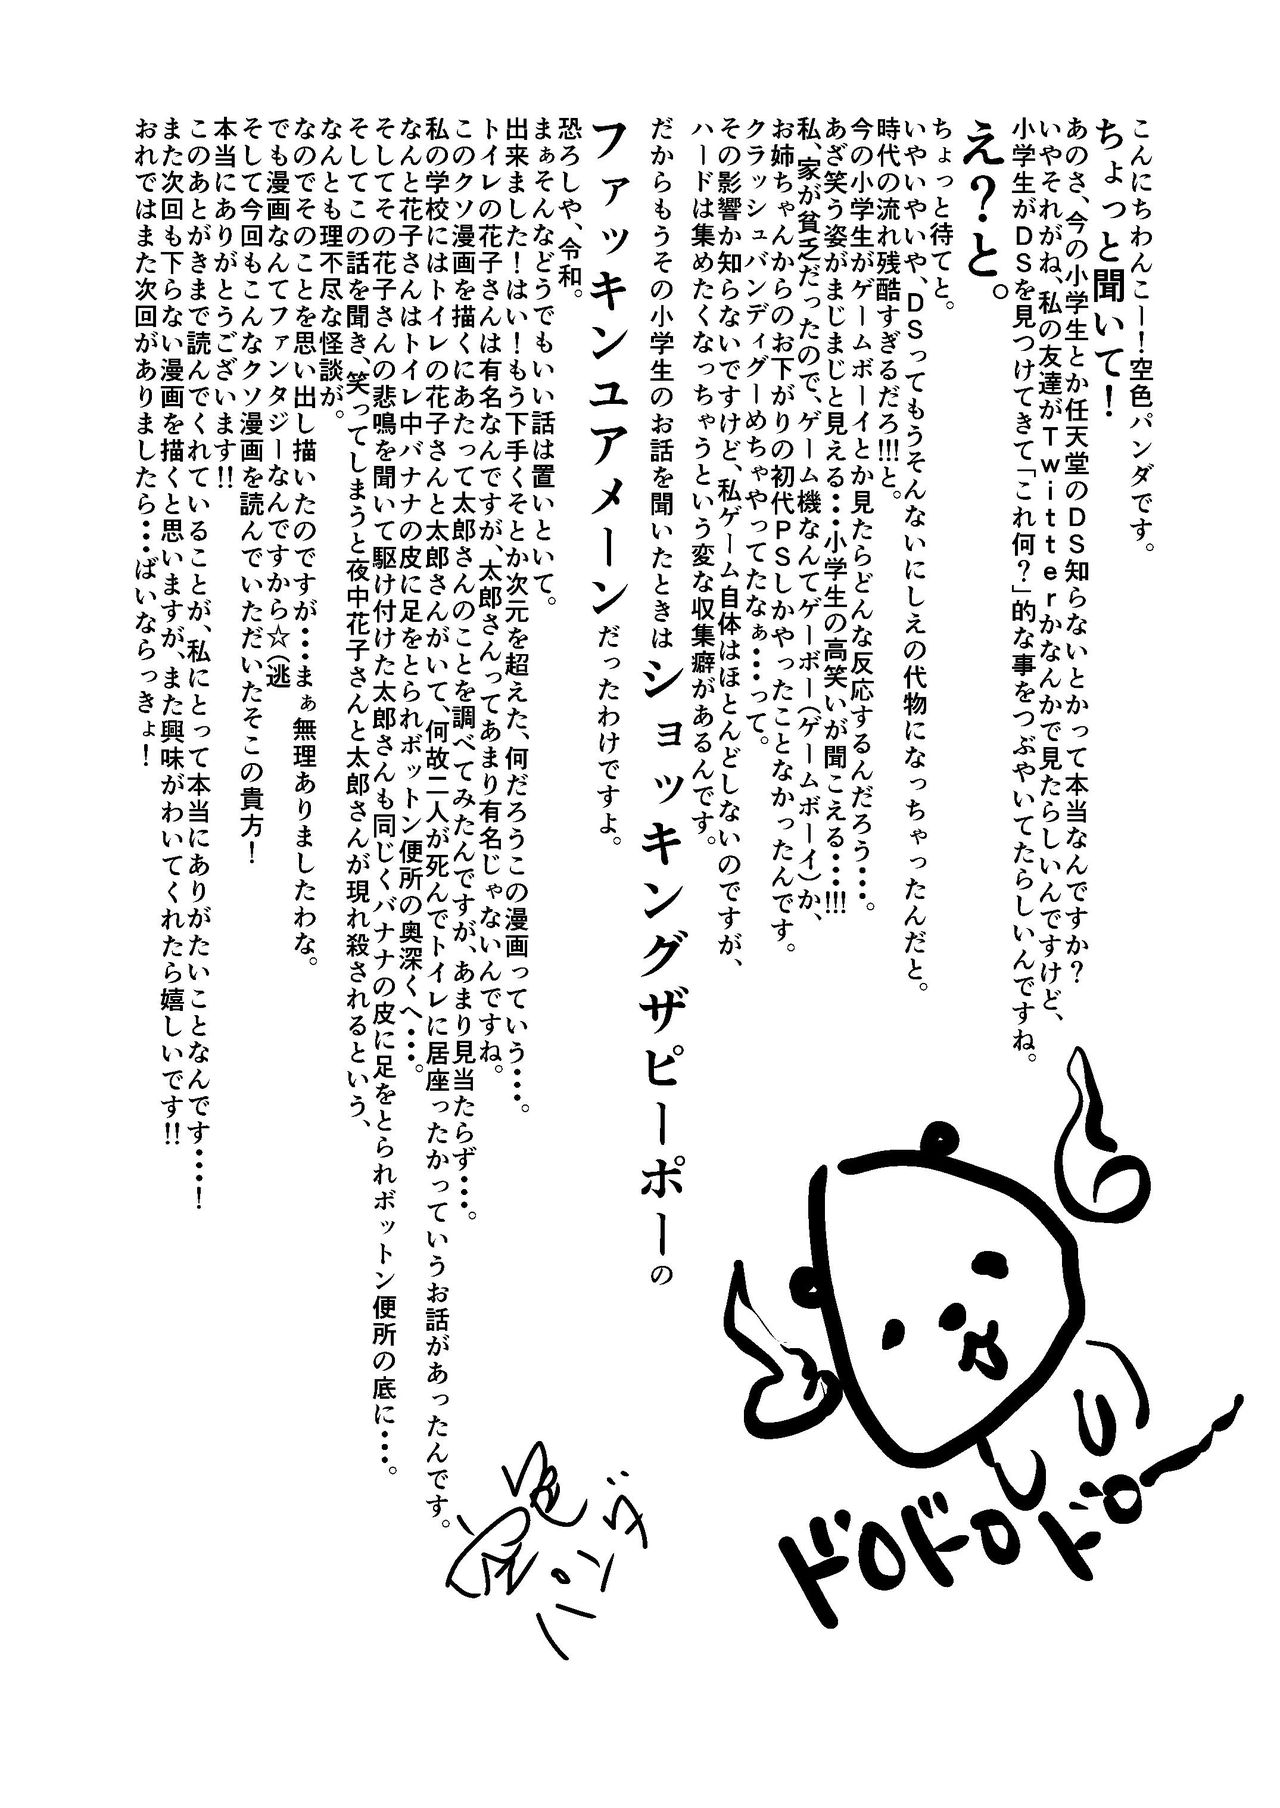 こんにちわんこー！空色パンダです。
ちょっと聞いて！
あのさ、今の小学生とか任天堂のDS知らないとかって本当なんですか？
いやそれがね、私の友達がTwitterかなんかで見たらしいんですけど、
小学生がDSを見つけてきて「これ何？」的な事をつぶやいてたらしいんですね。
え？と。
ちょっと待てと。
いやいやいや、DSってもうそんないにしえの代物になっちゃったんだと。
時代の流れ残酷すぎるだろ!!!と。
今の小学生がゲームボーイとか見たらどんな反応するんだろう・・・。
あざ笑う姿がまじまじと見える・・・小学生の高笑いが聞こえる・・・!!!
私、家が貧乏だったので、ゲーム機なんてゲーボー（ゲームボーイ）か、
お姉ちゃんからのお下がりの初代PSしかやったことなかったんです。
クラッシュバンディグーめちゃやってたなぁ・・・って。
その影響か知らないですけど、私ゲーム自体はほとんどしないのですが、
ハードは集めたくなっちゃうという変な収集癖があるんです。
だからもうその小学生のお話を聞いたときはショッキングザピーポーの
ファッキンユアメーンだったわけですよ。
恐ろしや、令和。
まぁそんなどうでもいい話は置いといて。
出来ました！はい！もう下手くそとか次元を超えた、何だろうこの漫画っていう・・・。
トイレの花子さんは有名なんですが、太郎さんってあまり有名じゃないんですね。
このクソ漫画を描くにあたって太郎さんのことを調べてみたんですが、あまり見当たらず・・・。
私の学校にはトイレの花子さんと太郎さんがいて、何故二人が死んでトイレに居座ったかっていうお話があったんです。
なんと花子さんはトイレ中バナナの皮に足をとられボットン便所の奥深くへ・・・。
そしてその花子さんの悲鳴を聞いて駆け付けた太郎さんも同じくバナナの皮に足をとられボットン便所の底に・・・。
そしてこの話を聞き、笑ってしまうと夜中花子さんと太郎さんが現れ殺されるという、
なんとも理不尽な怪談が。
なのでそのことを思い出し描いたのですが・・・まぁ無理ありましたわな。
でも漫画なんてファンタジーなんですから☆（逃
そして今回もこんなクソ漫画を読んでいただいたそこの貴方！
本当にありがとうございます!!
このあとがきまで読んでくれていることが、私にとって本当にありがたいことなんです・・・！
また次回も下らない漫画を描くと思いますが、また興味がわいてくれたら嬉しいです!!
おれではまた次回がありましたら・・・ばいならっきょ！
ドロドロドロー
空色
パンダ